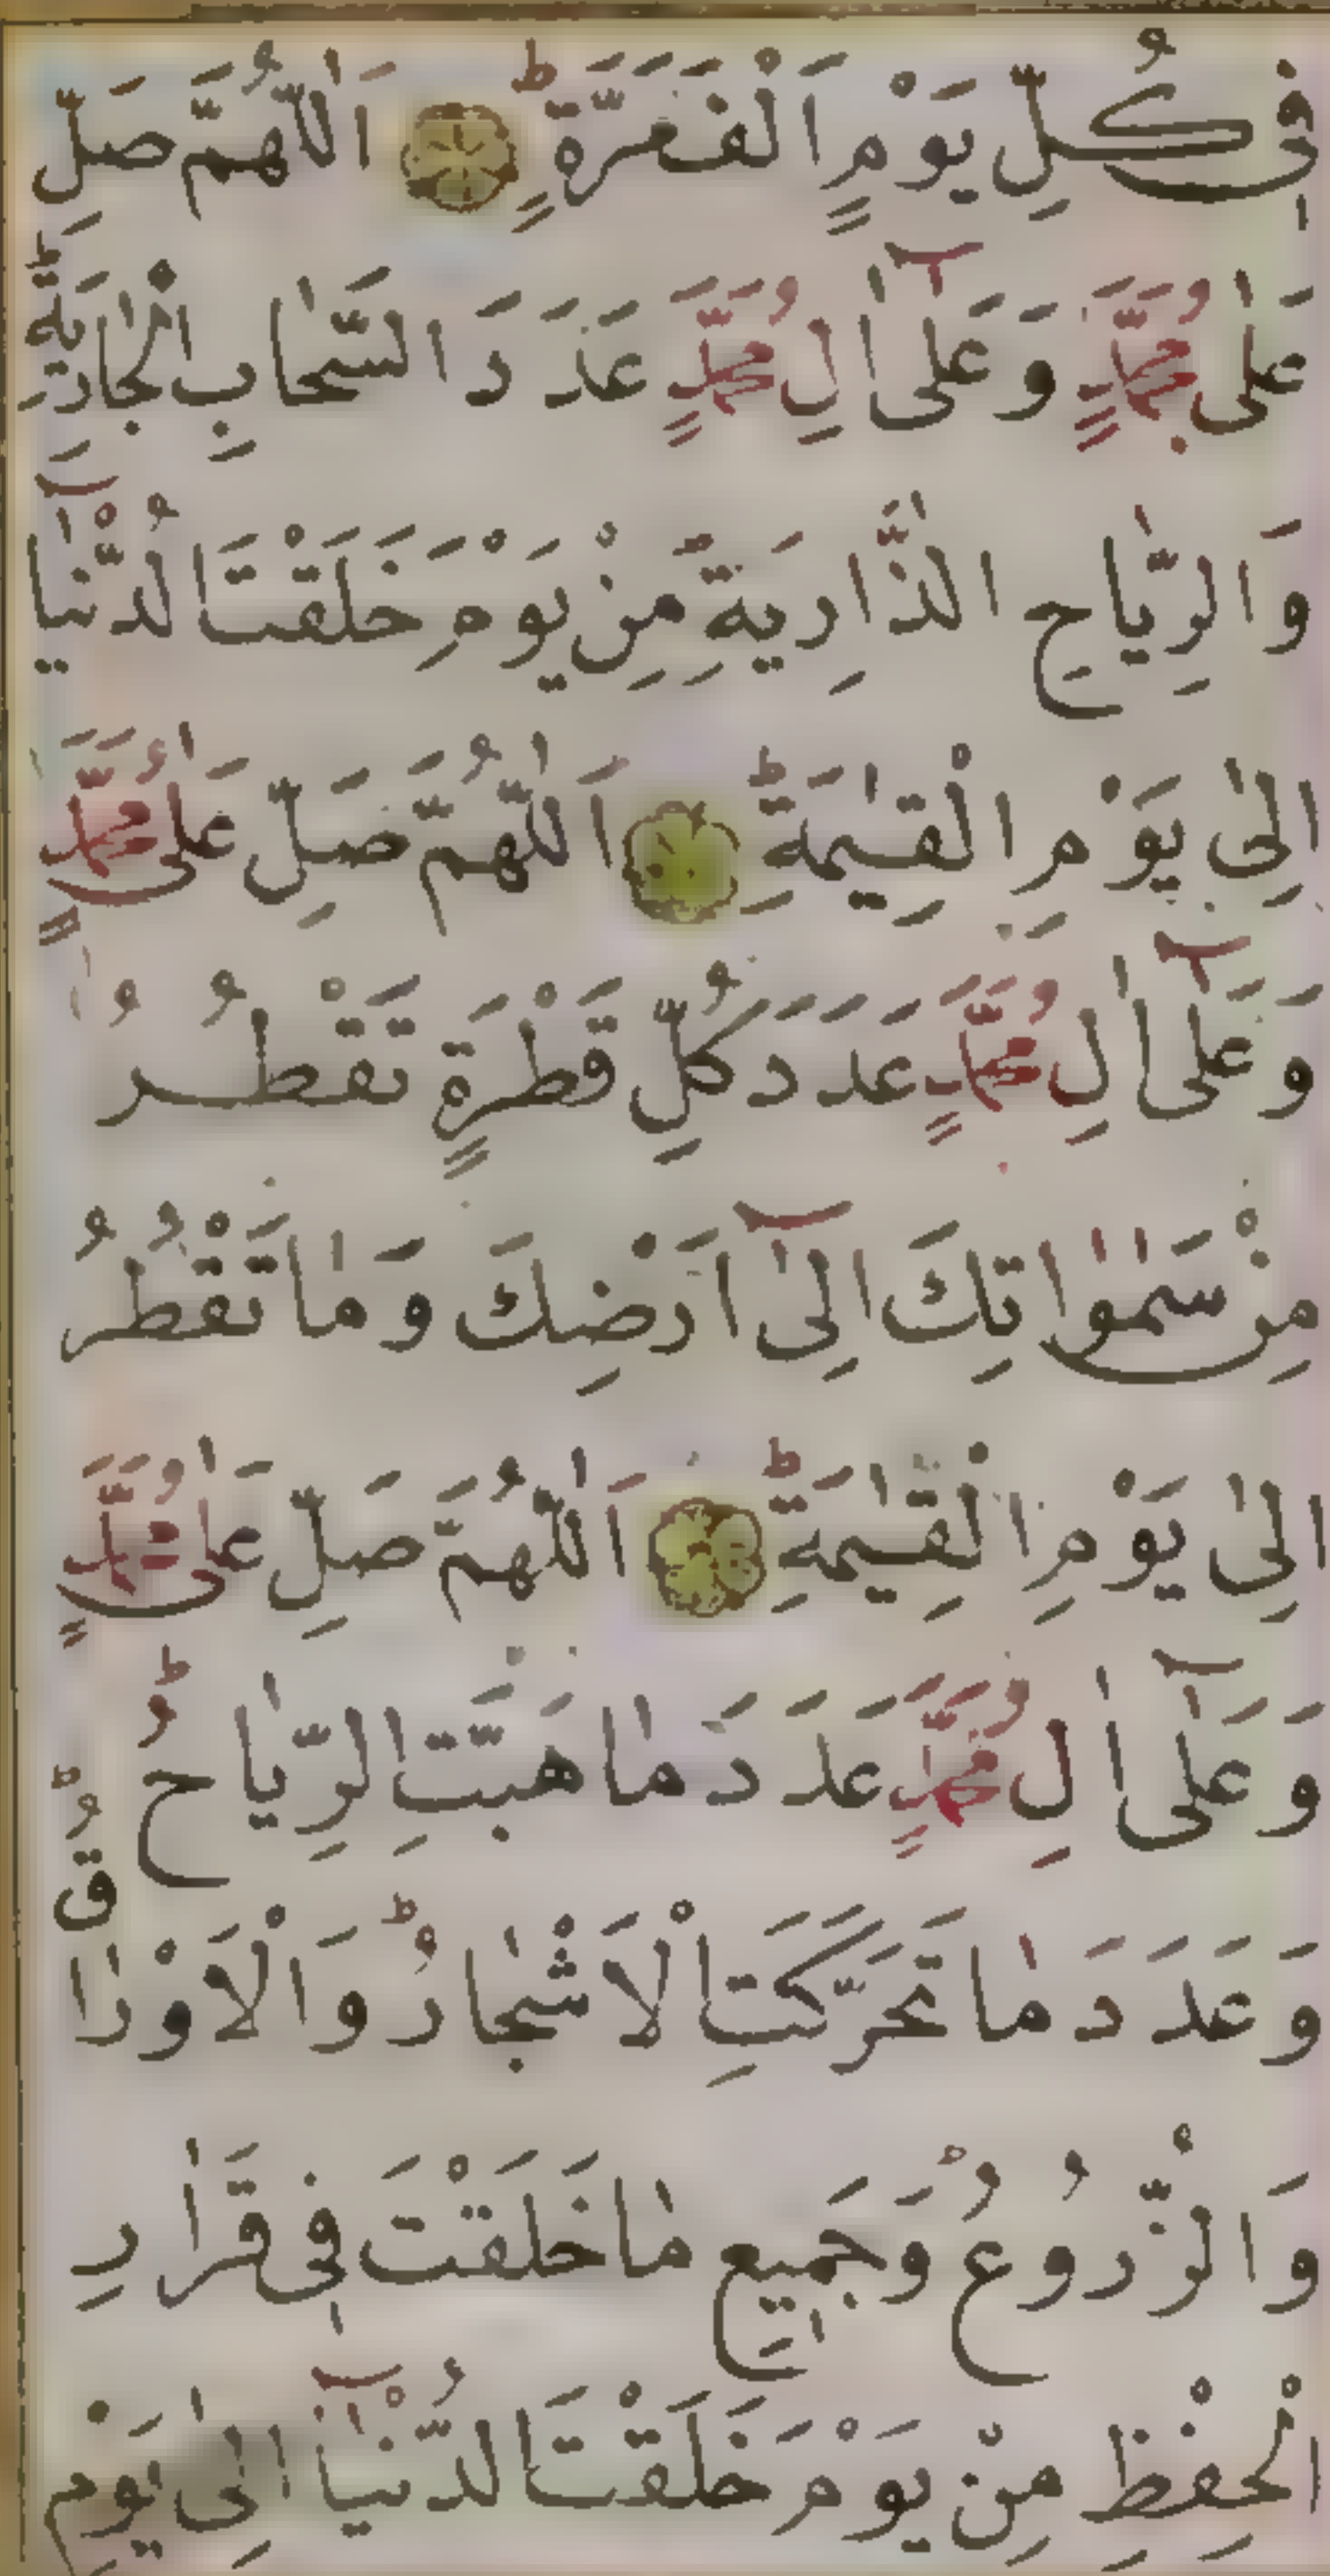 فِي كُلِّ يَوْمٍ اَلْفَ مَرَّةٍ ط اَللّٰهُمَّ صَلِّ
عَلٰى مُحَمَّدٍ وَعَلٰٓى اٰلِ مُحَمَّدٍ عَدَدَ السَّحَابِ الْجَارِيَةِ ط
وَالرِّيَاحِ الذَّارِيَةِ مِنْ يَوْمَ خَلَقْتَ الدُّنْيَآ
اِلٰى يَوْمِ الْقِيٰمَةِ ط اَللّٰهُمَّ صَلِّ عَلٰى مُحَمَّدٍ
وَعَلٰٓى اٰلِ مُحَمَّدٍ عَدَدَ كُلِّ قَطْرَةٍ تَقْطُرُ
مِنْ سَمٰوٰاتِكَ اِلٰٓى اَرْضِكَ وَمَا تَقْطُرُ
اِلٰى يَوْمِ الْقِيٰمَةِ ط اَللّٰهُمَّ صَلِّ عَلٰى مُحَمَّدٍ
وَعَلٰٓى اٰلِ مُحَمَّدٍ عَدَدَ مَا هَبَّتِ الرِّيَاحُ ط
وَعَدَدَ مَا تَحَرَّكَتِ الْاَشْجَارُ ط وَالْاَوْرَاقُ ط
وَالزُّرُوعُ وَجَمِيعِ مَا خَلَقْتَ فِي قَرَارِ
الْحِفْظِ مِنْ يَوْمَ خَلَقْتَ الدُّنْيَآ اِلٰى يَوْمِ